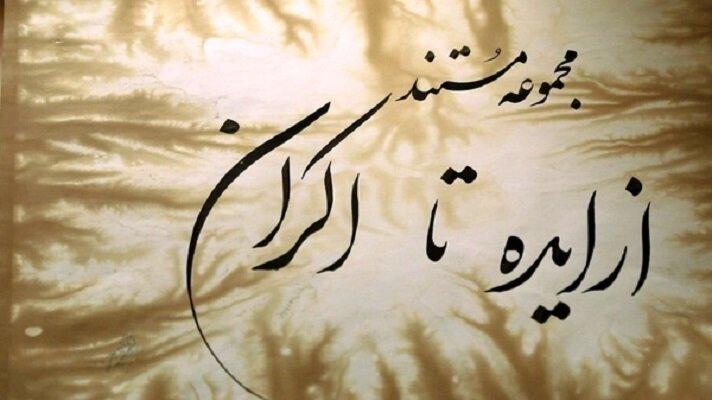 مجموعه مُستند
از ایده تا اکران